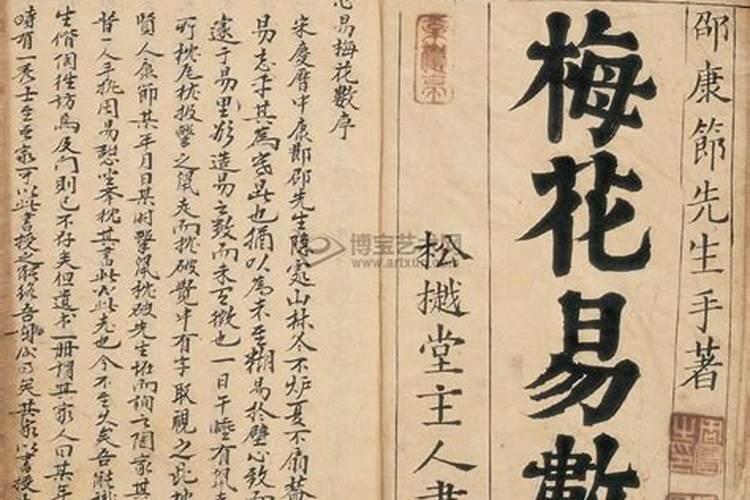 邵康節先生手著
梅花易數
松樾堂主人書
心易梅花數序
宋慶曆中康節邵先生隱處山林冬不炉夏不扇蓋
易忘乎其為寒暑也猶以為未至糊易於壁心致而
遂于易理欲造易之數而未有徵也一日午睡有鼠走
所枕瓦枕投擊之鼠走而枕破覺中有字取視之此枕
賢人康節某年月日某时擊鼠枕破先生
昔一人手執周易憩坐举枕其書此必此老也今不至久矣吾能識
生偕個往訪焉及門則已不存矣但遺书一册謂其家人曰某年
時有一秀士至吾家可以此書授之能終吾身後事矣其家以書授先
博宝艺术网
www.artxun.com